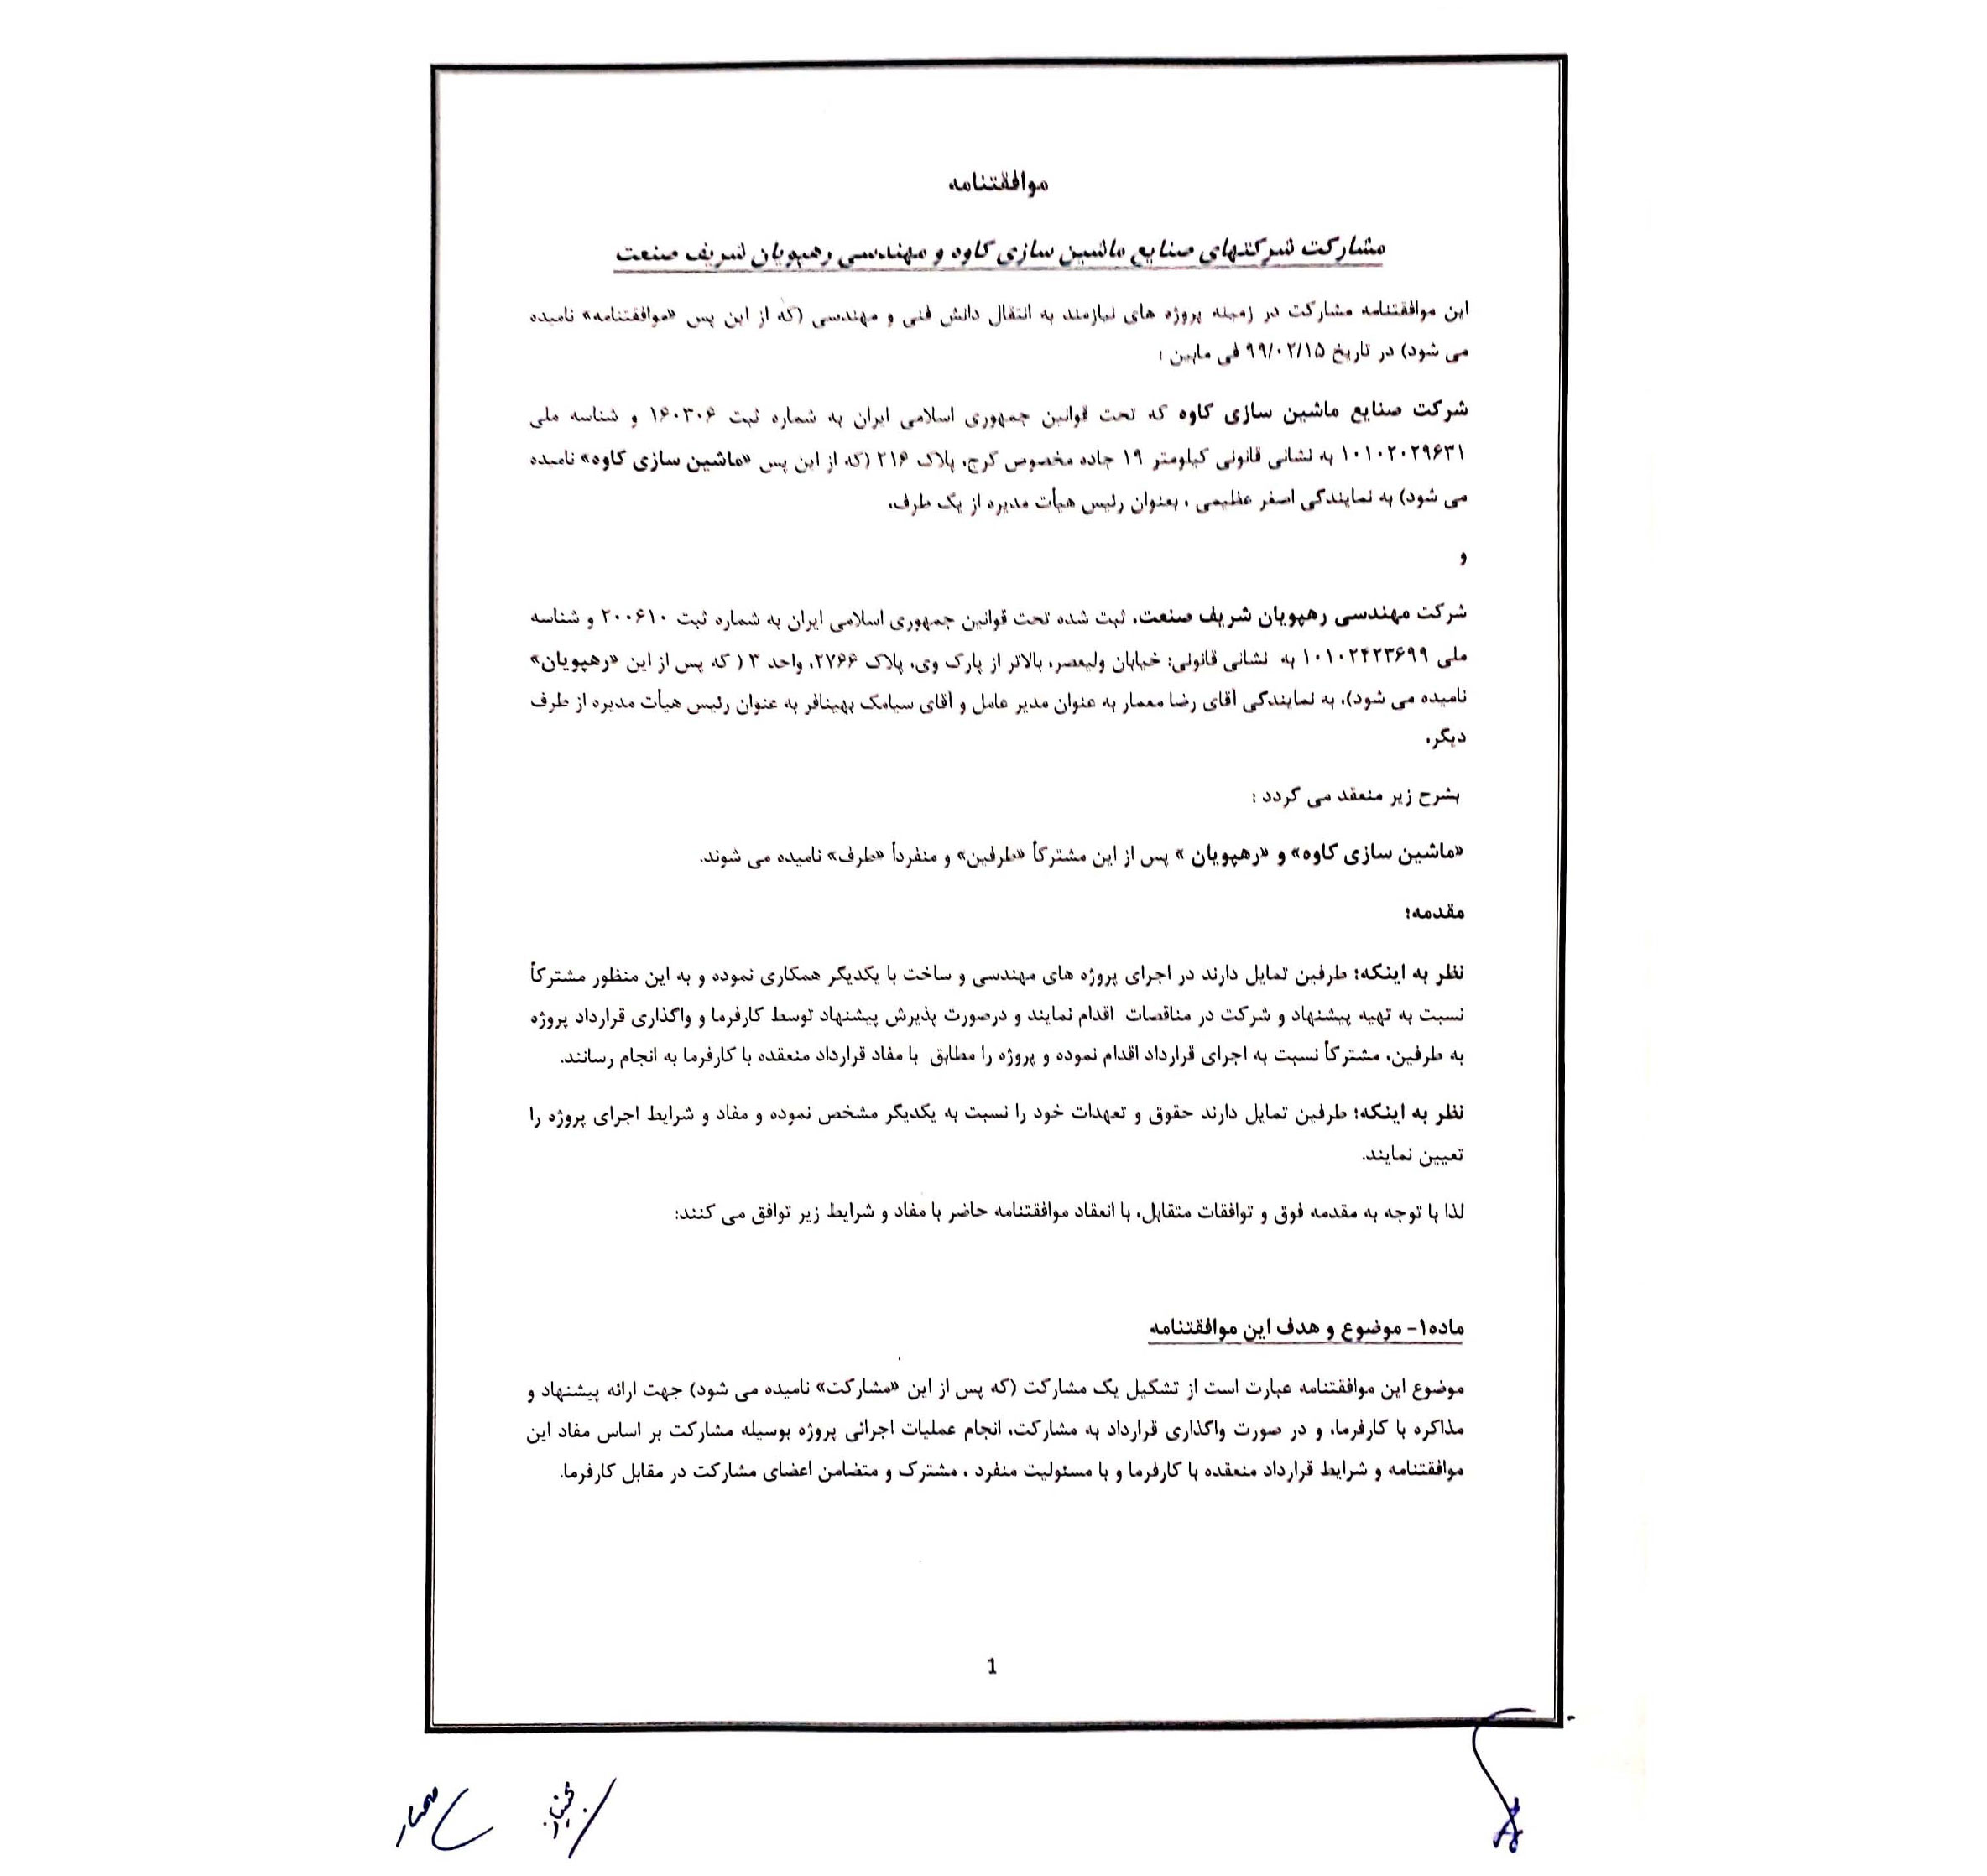 موافقتنامه
مشارکت شرکتهای صنایع ماشین سازی کاوه و مهندسی رهپویان شریف صنعت
این موافقتنامه مشارکت در زمینه پروژه های نیازمند به انتقال دانش فنی و مهندسی (که از این پس «موافقتنامه» نامیده
می شود) در تاریخ ۹۹/۰۲/۱۵ فی مابین :
شرکت صنایع ماشین سازی کاوه که تحت قوانین جمهوری اسلامی ایران به شماره ثبت ۱۶۰۳۰۶ و شناسه ملی
۱۰۱۰۲۰۲۹۶۳۱ به نشانی قانونی کیلومتر ۱۹ جاده مخصوص کرج، پلاک ۲۱۶ (که از این پس «ماشین سازی کاوه» نامیده
می شود) به نمایندگی اصغر عظیمی ، بعنوان رئیس هیأت مدیره از یک طرف،
و
شرکت مهندسی رهپویان شریف صنعت، ثبت شده تحت قوانین جمهوری اسلامی ایران به شماره ثبت ۲۰۰۶۱۰ و شناسه
ملی ۱۰۱۰۲۴۲۳۶۹۹ به نشانی قانونی: خیابان ولیعصر، بالاتر از پارک وی، پلاک ۲۷۶۶، واحد ۳ ( که پس از این «رهپویان»
نامیده می شود)، به نمایندگی آقای رضا معمار به عنوان مدیر عامل و آقای سیامک بهینافر به عنوان رئیس هیأت مدیره از طرف
دیگر،
بشرح زیر منعقد می گردد :
«ماشین سازی کاوه» و «رهپویان » پس از این مشترکاً «طرفین» و منفرداً «طرف» نامیده می شوند.
مقدمه؛
نظر به اینکه؛ طرفین تمایل دارند در اجرای پروژه های مهندسی و ساخت با یکدیگر همکاری نموده و به این منظور مشترکاً
نسبت به تهیه پیشنهاد و شرکت در مناقصات اقدام نمایند و درصورت پذیرش پیشنهاد توسط کارفرما و واگذاری قرارداد پروژه
به طرفین، مشترکاً نسبت به اجرای قرارداد اقدام نموده و پروژه را مطابق با مفاد قرارداد منعقده با کارفرما به انجام رسانند.
نظر به اینکه؛ طرفین تمایل دارند حقوق و تعهدات خود را نسبت به یکدیگر مشخص نموده و مفاد و شرایط اجرای پروژه را
تعیین نمایند.
لذا با توجه به مقدمه فوق و توافقات متقابل، با انعقاد موافقتنامه حاضر با مفاد و شرایط زیر توافق می کنند:
ماده۱- موضوع و هدف این موافقتنامه
موضوع این موافقتنامه عبارت است از تشکیل یک مشارکت (که پس از این «مشارکت» نامیده می شود) جهت ارائه پیشنهاد و
مذاکره با کارفرما، و در صورت واگذاری قرارداد به مشارکت، انجام عملیات اجرائی پروژه بوسیله مشارکت بر اساس مفاد این
موافقتنامه و شرایط قرارداد منعقده با کارفرما و با مسئولیت منفرد ، مشترک و متضامن اعضای مشارکت در مقابل کارفرما.
1